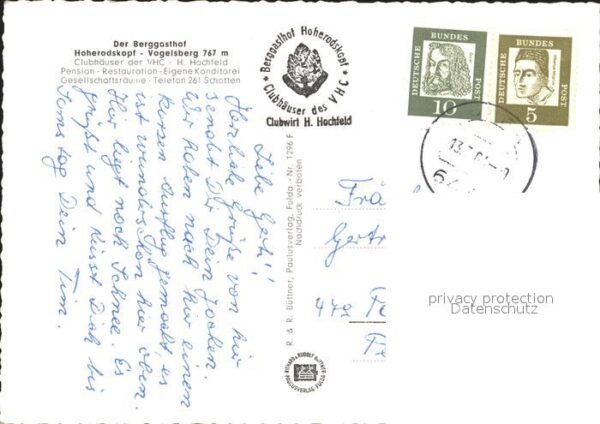 Der Berggasthof
Hoherodskopf - Vogelsberg 767 m
Clubhäuser der VHC · H. Hochfeld
Pension - Restauration - Eigene Konditorei
Gesellschaftsräume · Telefon 261 Schotten
Berggasthof Hoherodskopf
Clubhäuser des VHC
Clubwirt H. Hochfeld
DEUTSCHE BUNDES POST
10
DEUTSCHE BUNDES POST
5
Liebe Gerti!
Herzliche Grüße von hier
sendet Dir Dein Jochen.
Wir haben nach hier einen
kurzen Ausflug gemacht, es
ist wunderschön hier oben.
Hier liegt noch Schnee. Es
grüßt und küsst Dich bis
Samstag Dein
R. & R. Büttner, Paulusverlag, Fulda · Nr. 1296 F
Nachdruck verboten
RICHARD & RUDOLF BÜTTNER
PAULUSVERLAG FULDA
Frä
Gertr
privacy protection
Datenschutz